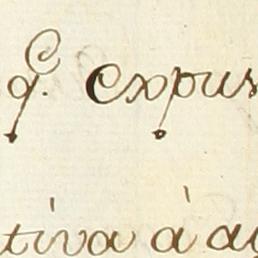 q. expus
tiva à a